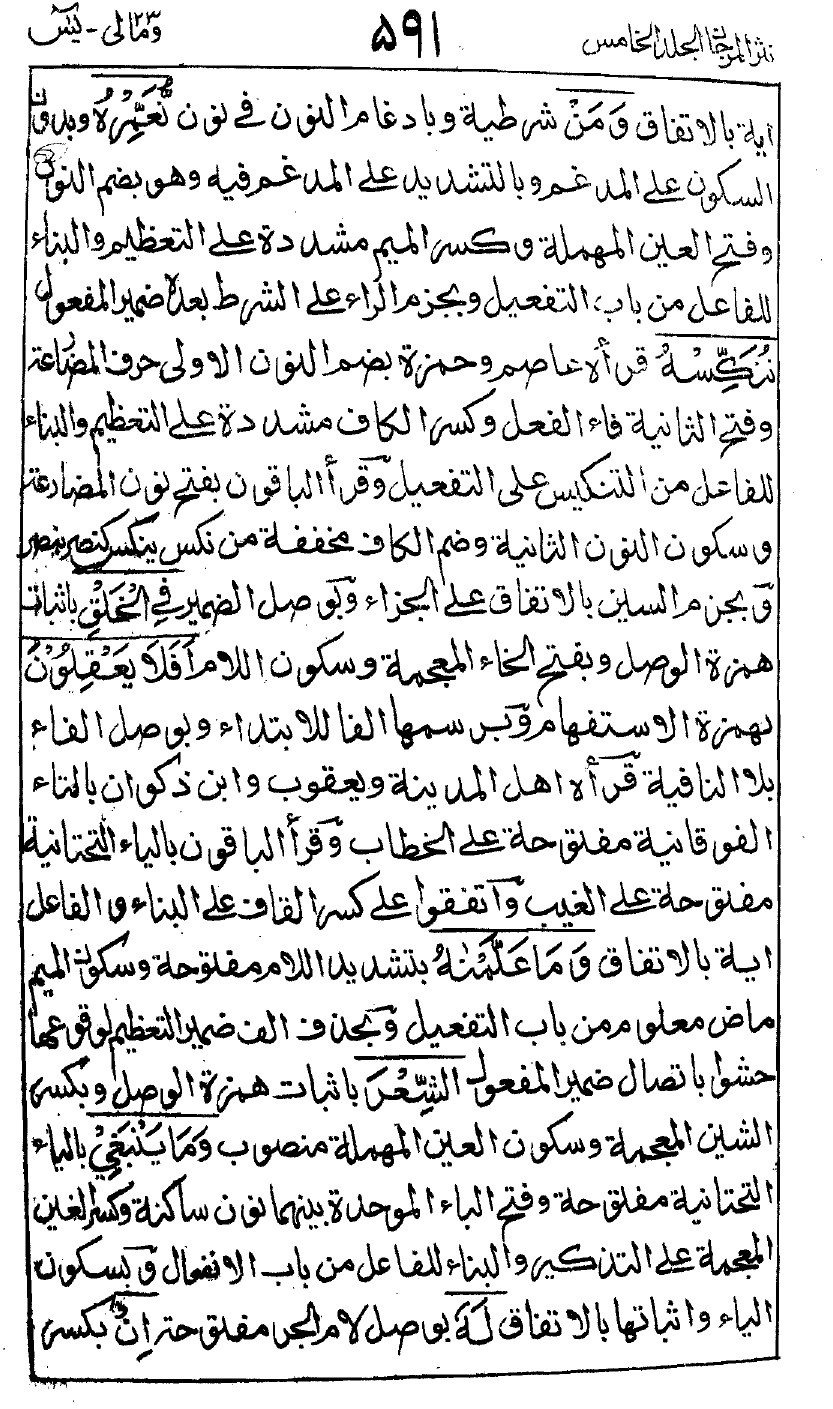 نثر المرجان الجلد الخامس ۵۹۱ ومالى٢٣ - يٰسٓ
اية بالاتفاق وَمَنْ شرطية وبادغام النون فى نون نُّعَمِّرْهُ وبدون
السكون على المدغم وبالتشديد على المدغم فيه وهو بضم النون
وفتح العين المهملة وكسر الميم مشددة على التعظيم والبناء
للفاعل من باب التفعيل وبجزم الراء على الشرط بعده ضمير المفعول
نُنَكِّسْهُ قرأه عاصم وحمزة بضم النون الاولى حرف المضارعة
وفتح الثانية فاء الفعل وكسر الكاف مشددة على التعظيم والبناء
للفاعل من التنكيس على التفعيل وقرأ الباقون بفتح نون المضارعة
وسكون النون الثانية وضم الكاف مخففة من نكس ينكس كنصر ينصر
وبجزم السين بالاتفاق على الجزاء وبوصل الضمير فِى الْخَلْقِ باثبات
همزة الوصل وبفتح الخاء المعجمة وسكون اللام اَفَلَا يَعْقِلُوْنَ
بهمزة الاستفهام وبرسمها الفا للابتداء وبوصل الفاء
بلا النافية قرأه اهل المدينة ويعقوب وابن ذكوان بالتاء
الفوقانية مفتوحة على الخطاب وقرأ الباقون بالياء التحتانية
مفتوحة على الغيب واتفقوا على كسر القاف على البناء والفاعل
اية بالاتفاق وَمَا عَلَّمْنٰهُ بتشديد اللام مفتوحة وسكون الميم
ماض معلوم من باب التفعيل وبحذف الف ضمير التعظيم لوقوعها
حشوا باتصال ضمير المفعول الشِّعْرَ باثبات همزة الوصل وبكسر
الشين المعجمة وسكون العين المهملة منصوب وَمَا يَنْبَغِيْ بالياء
التحتانية مفتوحة وفتح الباء الموحدة بينهما نون ساكنة وكسر الغين
المعجمة على التذكير والبناء للفاعل من باب الانفعال وبسكون
الياء واثباتها بالاتفاق لَهٗ بوصل لام الجر مفتوحة اِنْ بكسر